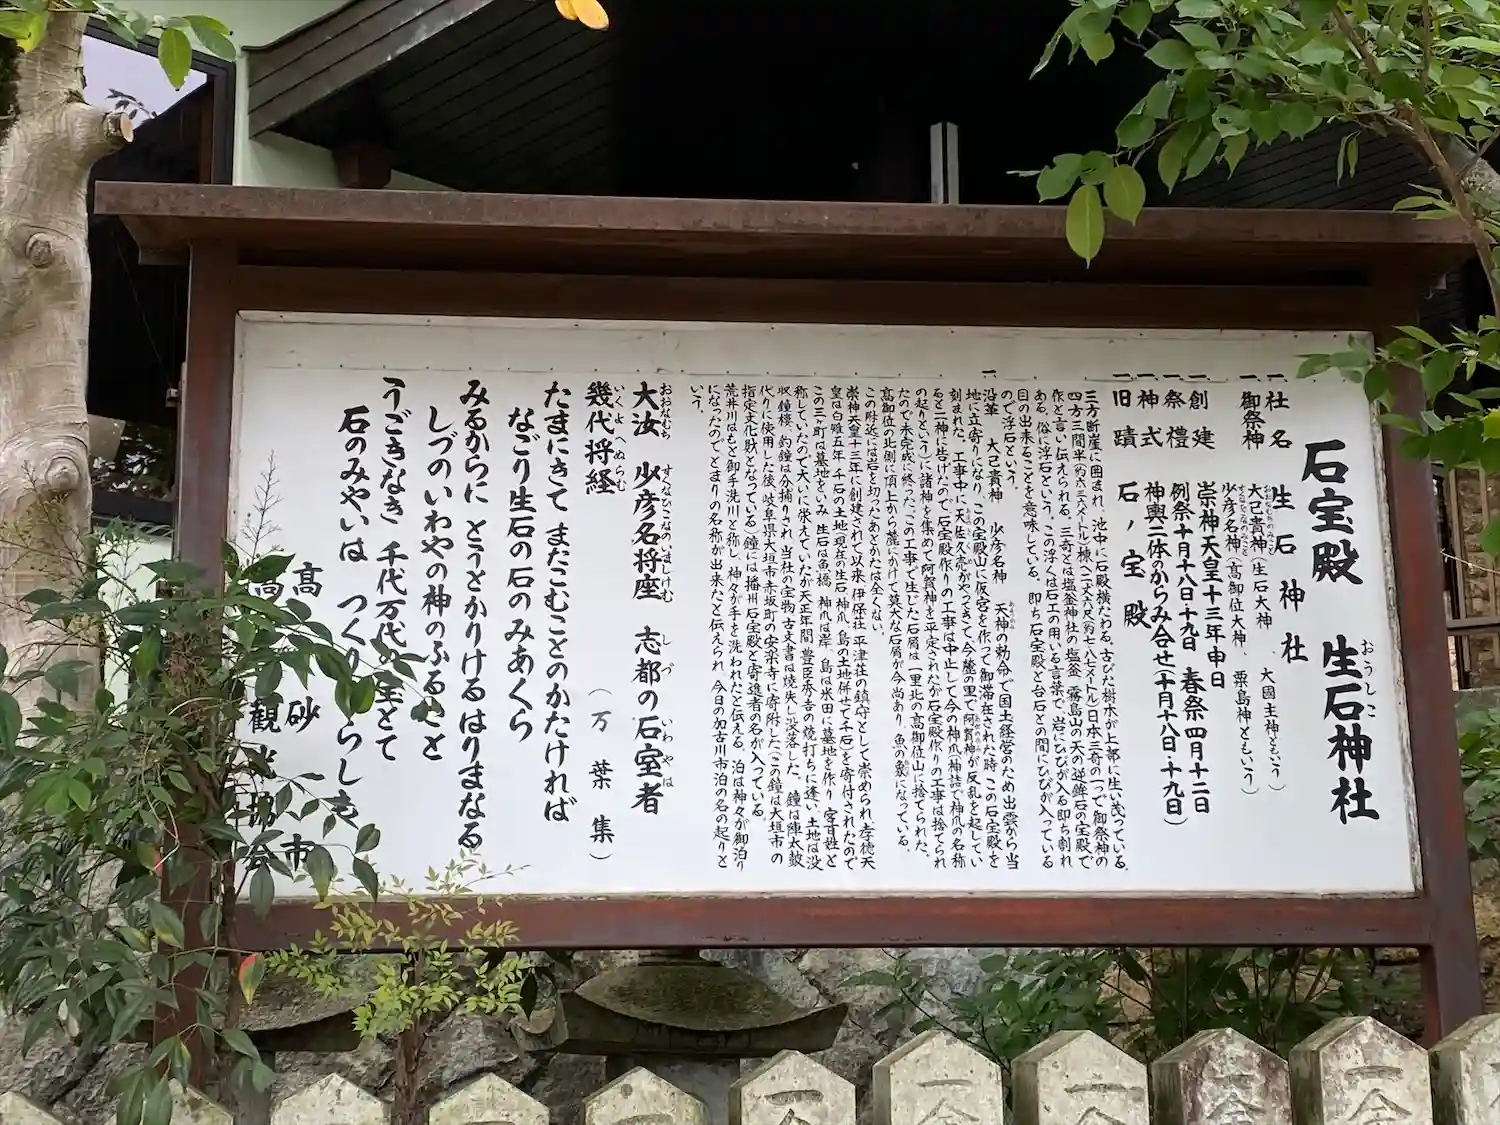 石宝殿 生石神社
おうしこ
一社名 生石神社
一御祭神 大己貴神(生石大神 大國主神ともいう)
少彦名神(高御位大神、粟島神ともいう)
一創建 崇神天皇十三年申日
一祭禮 例祭十月十八日・十九日 春祭四月十二日
一神式 神輿二体のからみ合せ(十月十八日・十九日)
一旧蹟 石ノ宝殿
三方断崖に囲まれ、池中に石殿横たわる。古びた樹木が上部に生い茂っている。
四方三間半(約六・三六メートル)棟へ二丈六尺(約七・八七メートル)日本三奇の一つで、御祭神の
作と言い伝えられる。三奇とは塩釜神社の塩釜、霧島山の天の逆鉾、石の宝殿で
ある。俗に浮石という。この浮くは石工の用いる言葉で、岩にひびが入る即ち割れ
目の出来ることを意味している。即ち石宝殿と台石との間にひびが入っている
ので浮石という。
一沿革 大己貴神 少彦名神 天神の勅命で国土経営のため出雲から当
地に立寄りになり、この宝殿山に仮宮を作って御滞在された時、この石宝殿を
刻まれた。工事中に天佐久売がやってきて今麓の里で阿賀神が反乱を起してい
ると二神に告げたので、石宝殿作りの工事は中止して今の神爪(神詰で神爪の名称
の起りという)に諸神を集めて阿賀神を平定されたが石宝殿作りの工事は捨てられ
たので未完成に終った。この工事で生じた石屑は一里北の高御位山に捨てられた。
高御位の北側に頂上から麓にかけて莫大な石屑が今尚あり、魚の鱗になっている。
この附近には岩を切ったあとかたは全くない。
崇神天皇十三年に創建されて以来、伊保荘、平津社の鎮守として崇められ、孝徳天
皇は白雉五年、千石の土地(現在の生石、神爪、島の土地併せて千石)を寄付されたので
この三ヶ町は墓地をいみ、生石は魚橋、神爪は岸、島は米田に墓地を作り、宮百姓と
称していたので大いに栄えていたが天正年間、豊臣秀吉の焼打ちに逢い、土地は没
収、鐘楼、釣鐘は分捕りされ、当社の宝物、古文書は焼失し没落した。鐘は陣太鼓
代りに使用した後、岐阜県大垣市赤坂町の安楽寺に寄附した(この鐘は大垣市の
指定文化財となっている)鐘には播州石宝殿と寄進者の名が入っている。
荒井川はもと御手洗川と称し、神々が手を洗われたと伝える。泊は神々が御泊り
になったのでとまりの名称が出来たと伝えられ、今日の加古川市泊の名の起りと
いう。
大汝 少彦名将座 志都の石室者
おおなむち すくなひこなのいましけむ しづ いわやは
幾代将経 (万葉集)
いくよへぬらむ
たまにきて またこむことのかたければ
なごり生石の石のみあくら
みるからに とうとかりける はりまなる
しづのいわやの神のふるさと
うごきなき 千代万代の宝とて
石のみやいは つくりらしも
高砂市
高砂観光協会